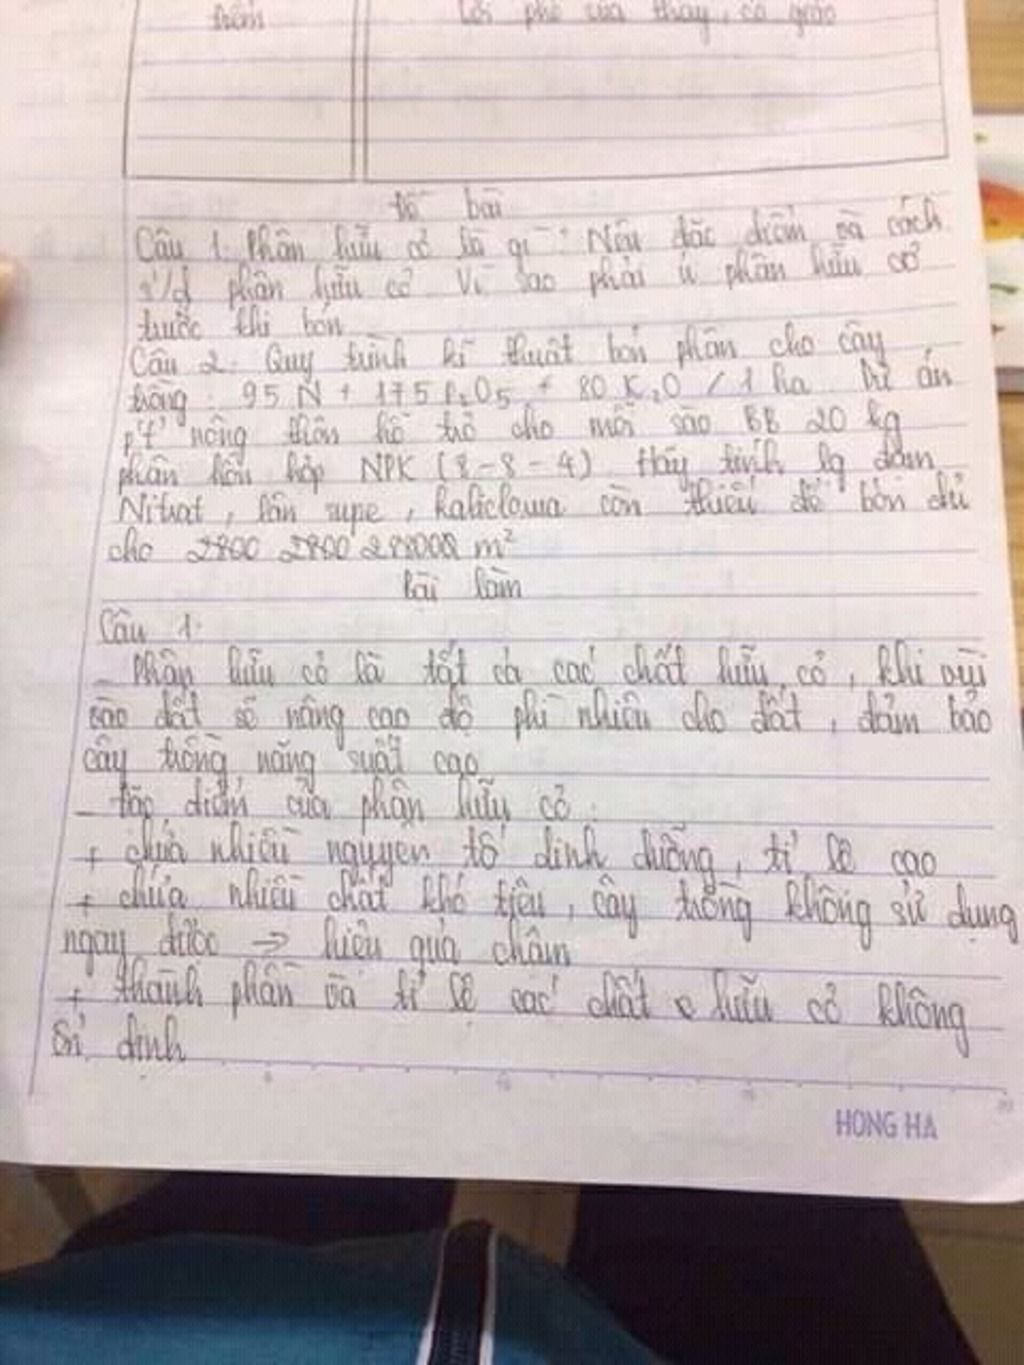 điểm Lời phê của thầy, cô giáo
Đề bài
Câu 1. Phân hữu cơ là gì? Nêu đặc điểm và cách
s/d phân hữu cơ. Vì sao phải ủ phân hữu cơ
trước khi bón
Câu 2. Quy trình kĩ thuật bón phân cho cây
trồng: 95 N + 175 P2O5 + 80 K2O / 1 ha. Dự án
pt nông thôn hỗ trợ cho mỗi sào BB 20 kg
phân hỗn hợp NPK (8-8-4) Hãy tính lg đạm
Nitrat, lân supe, kaliclorua còn thiếu để bón đủ
cho 2800 2800 m²
Bài làm
Câu 1.
- Phân hữu cơ là tất cả các chất hữu cơ, khi vùi
vào đất sẽ nâng cao độ phì nhiêu cho đất, đảm bảo
cây trồng năng suất cao
- Đặc điểm của phân hữu cơ:
+ chứa nhiều nguyên tố dinh dưỡng, tỉ lệ cao
+ chứa nhiều chất khó tiêu, cây trồng không sử dụng
ngay được → hiệu quả chậm
+ thành phần và tỉ lệ các chất hữu cơ không
ổn định
HONG HA